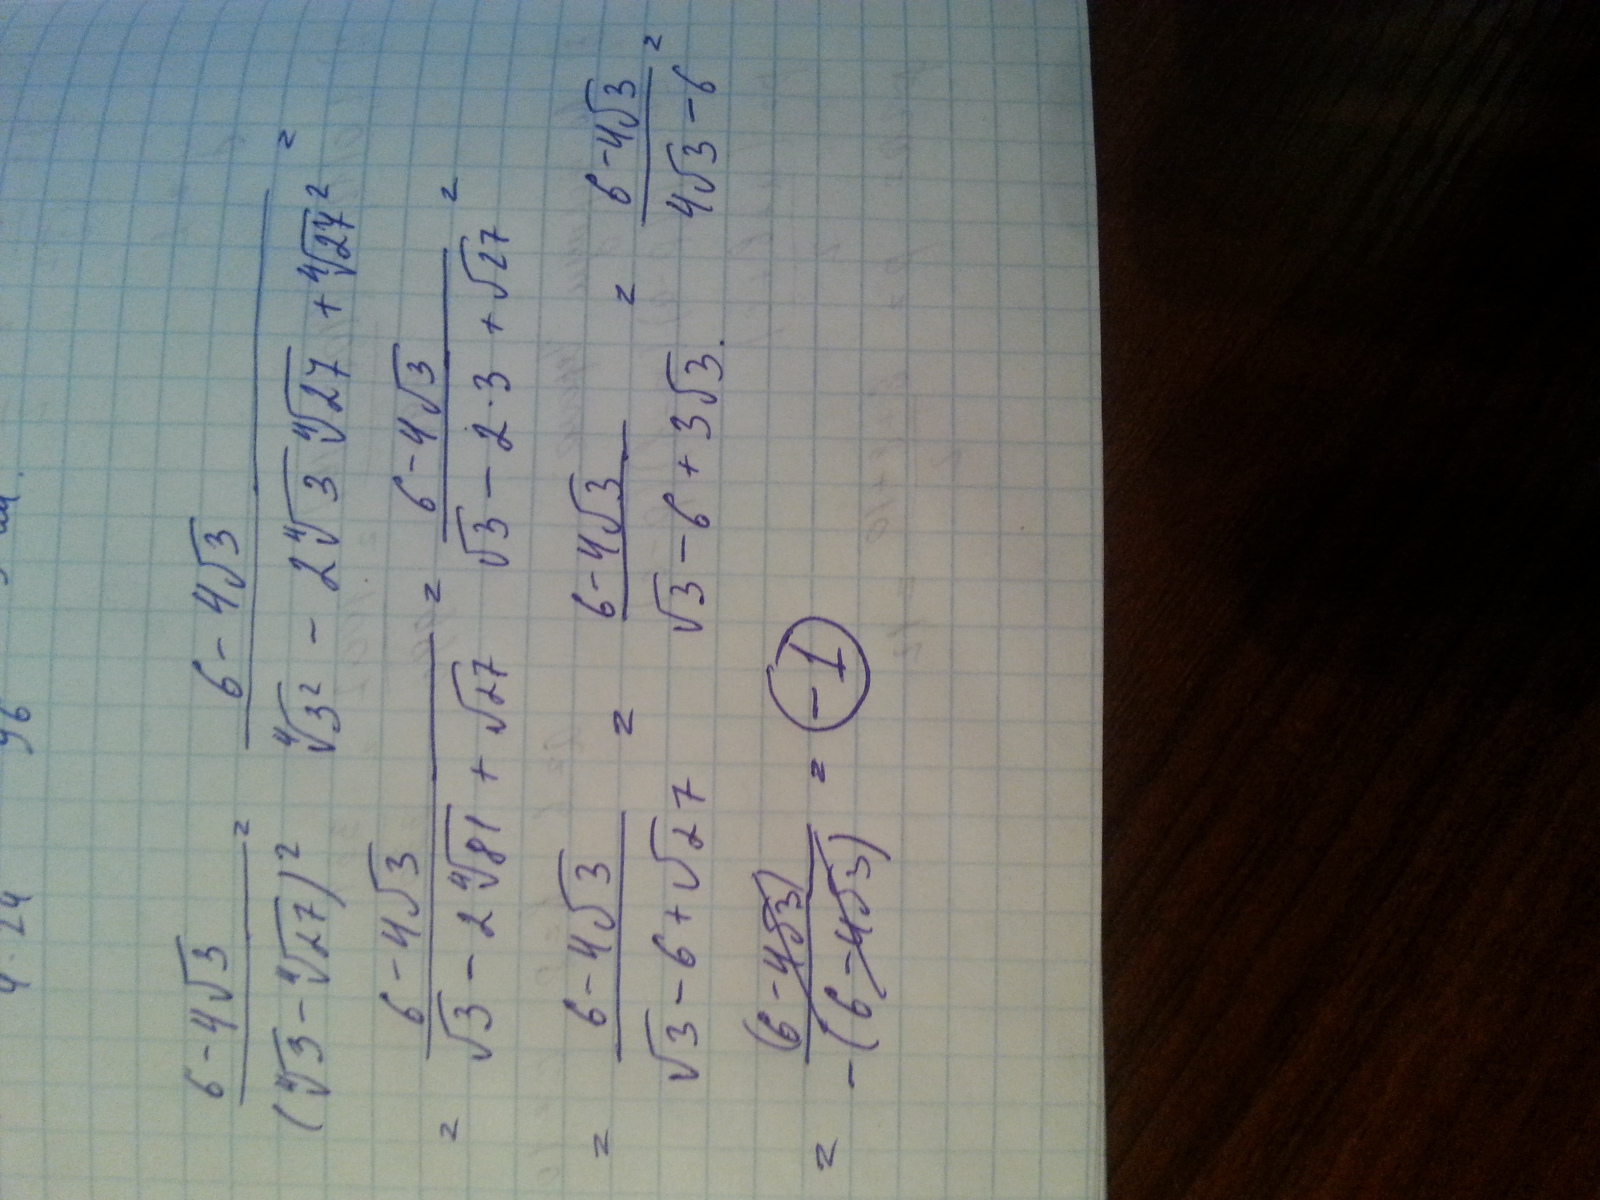 4·24 96
(6-4√3)/((⁴√3-⁴√27)²) = (6-4√3)/(⁴√3² - 2⁴√3 ⁴√27 + ⁴√27²) =
= (6-4√3)/(√3 - 2⁴√81 + √27) = (6-4√3)/(√3 - 2·3 + √27) =
= (6-4√3)/(√3-6+√27) = (6-4√3)/(√3-6+3√3.) = (6-4√3)/(4√3-6) =
= (6-4√3)/(-(6-4√3)) = -1